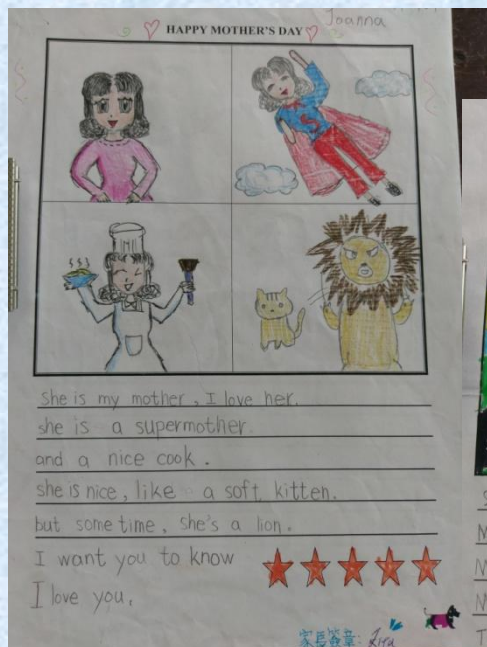 Joanna
HAPPY MOTHER'S DAY
She is my mother, I love her.
she is a supermother.
and a nice cook.
she is nice, like a soft kitten.
but sometime, she's a lion.
I want you to know
I love you.
家長簽章: